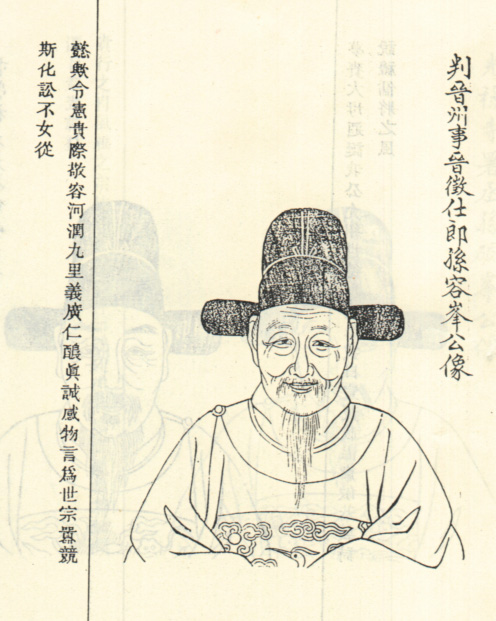 判晉州事晉徵仕郎孫容峯公像
懿歟令憲貴際敬容河潤九里義廣仁醲眞誠感物言爲世宗囂競
斯化訟不女從